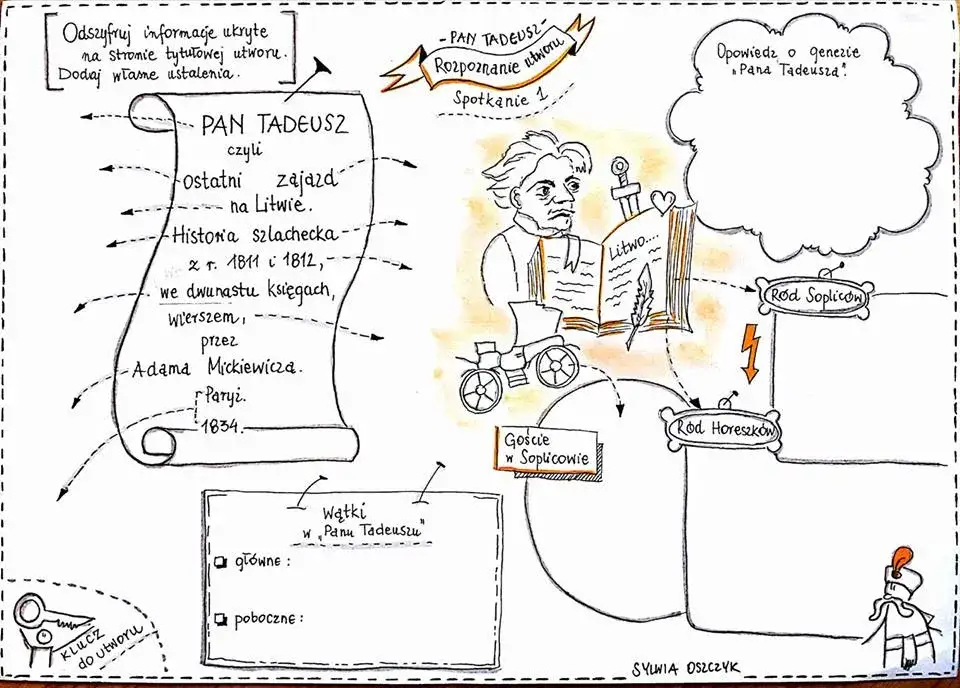 Odszyfruj informacje ukryte
na stronie tytułowej utworu.
Dodaj własne ustalenia.
- PAN TADEUSZ -
Rozpoznanie utworu
Spotkanie 1
Opowiedz o genezie
"Pana Tadeusza".
PAN TADEUSZ
czyli
ostatni zajazd
na Litwie.
Historia szlachecka
z r. 1811 i 1812,
we dwunastu księgach,
wierszem,
przez
Adama Mickiewicza.
Paryż.
1834.
Litwo....
Ród Sopliców
Ród Horeszków
Goście
w Soplicowie
Wątki
w „Panu Tadeuszu"
główne:
poboczne:
KLUCZ
do utworu
SYLWIA OSZCZYK